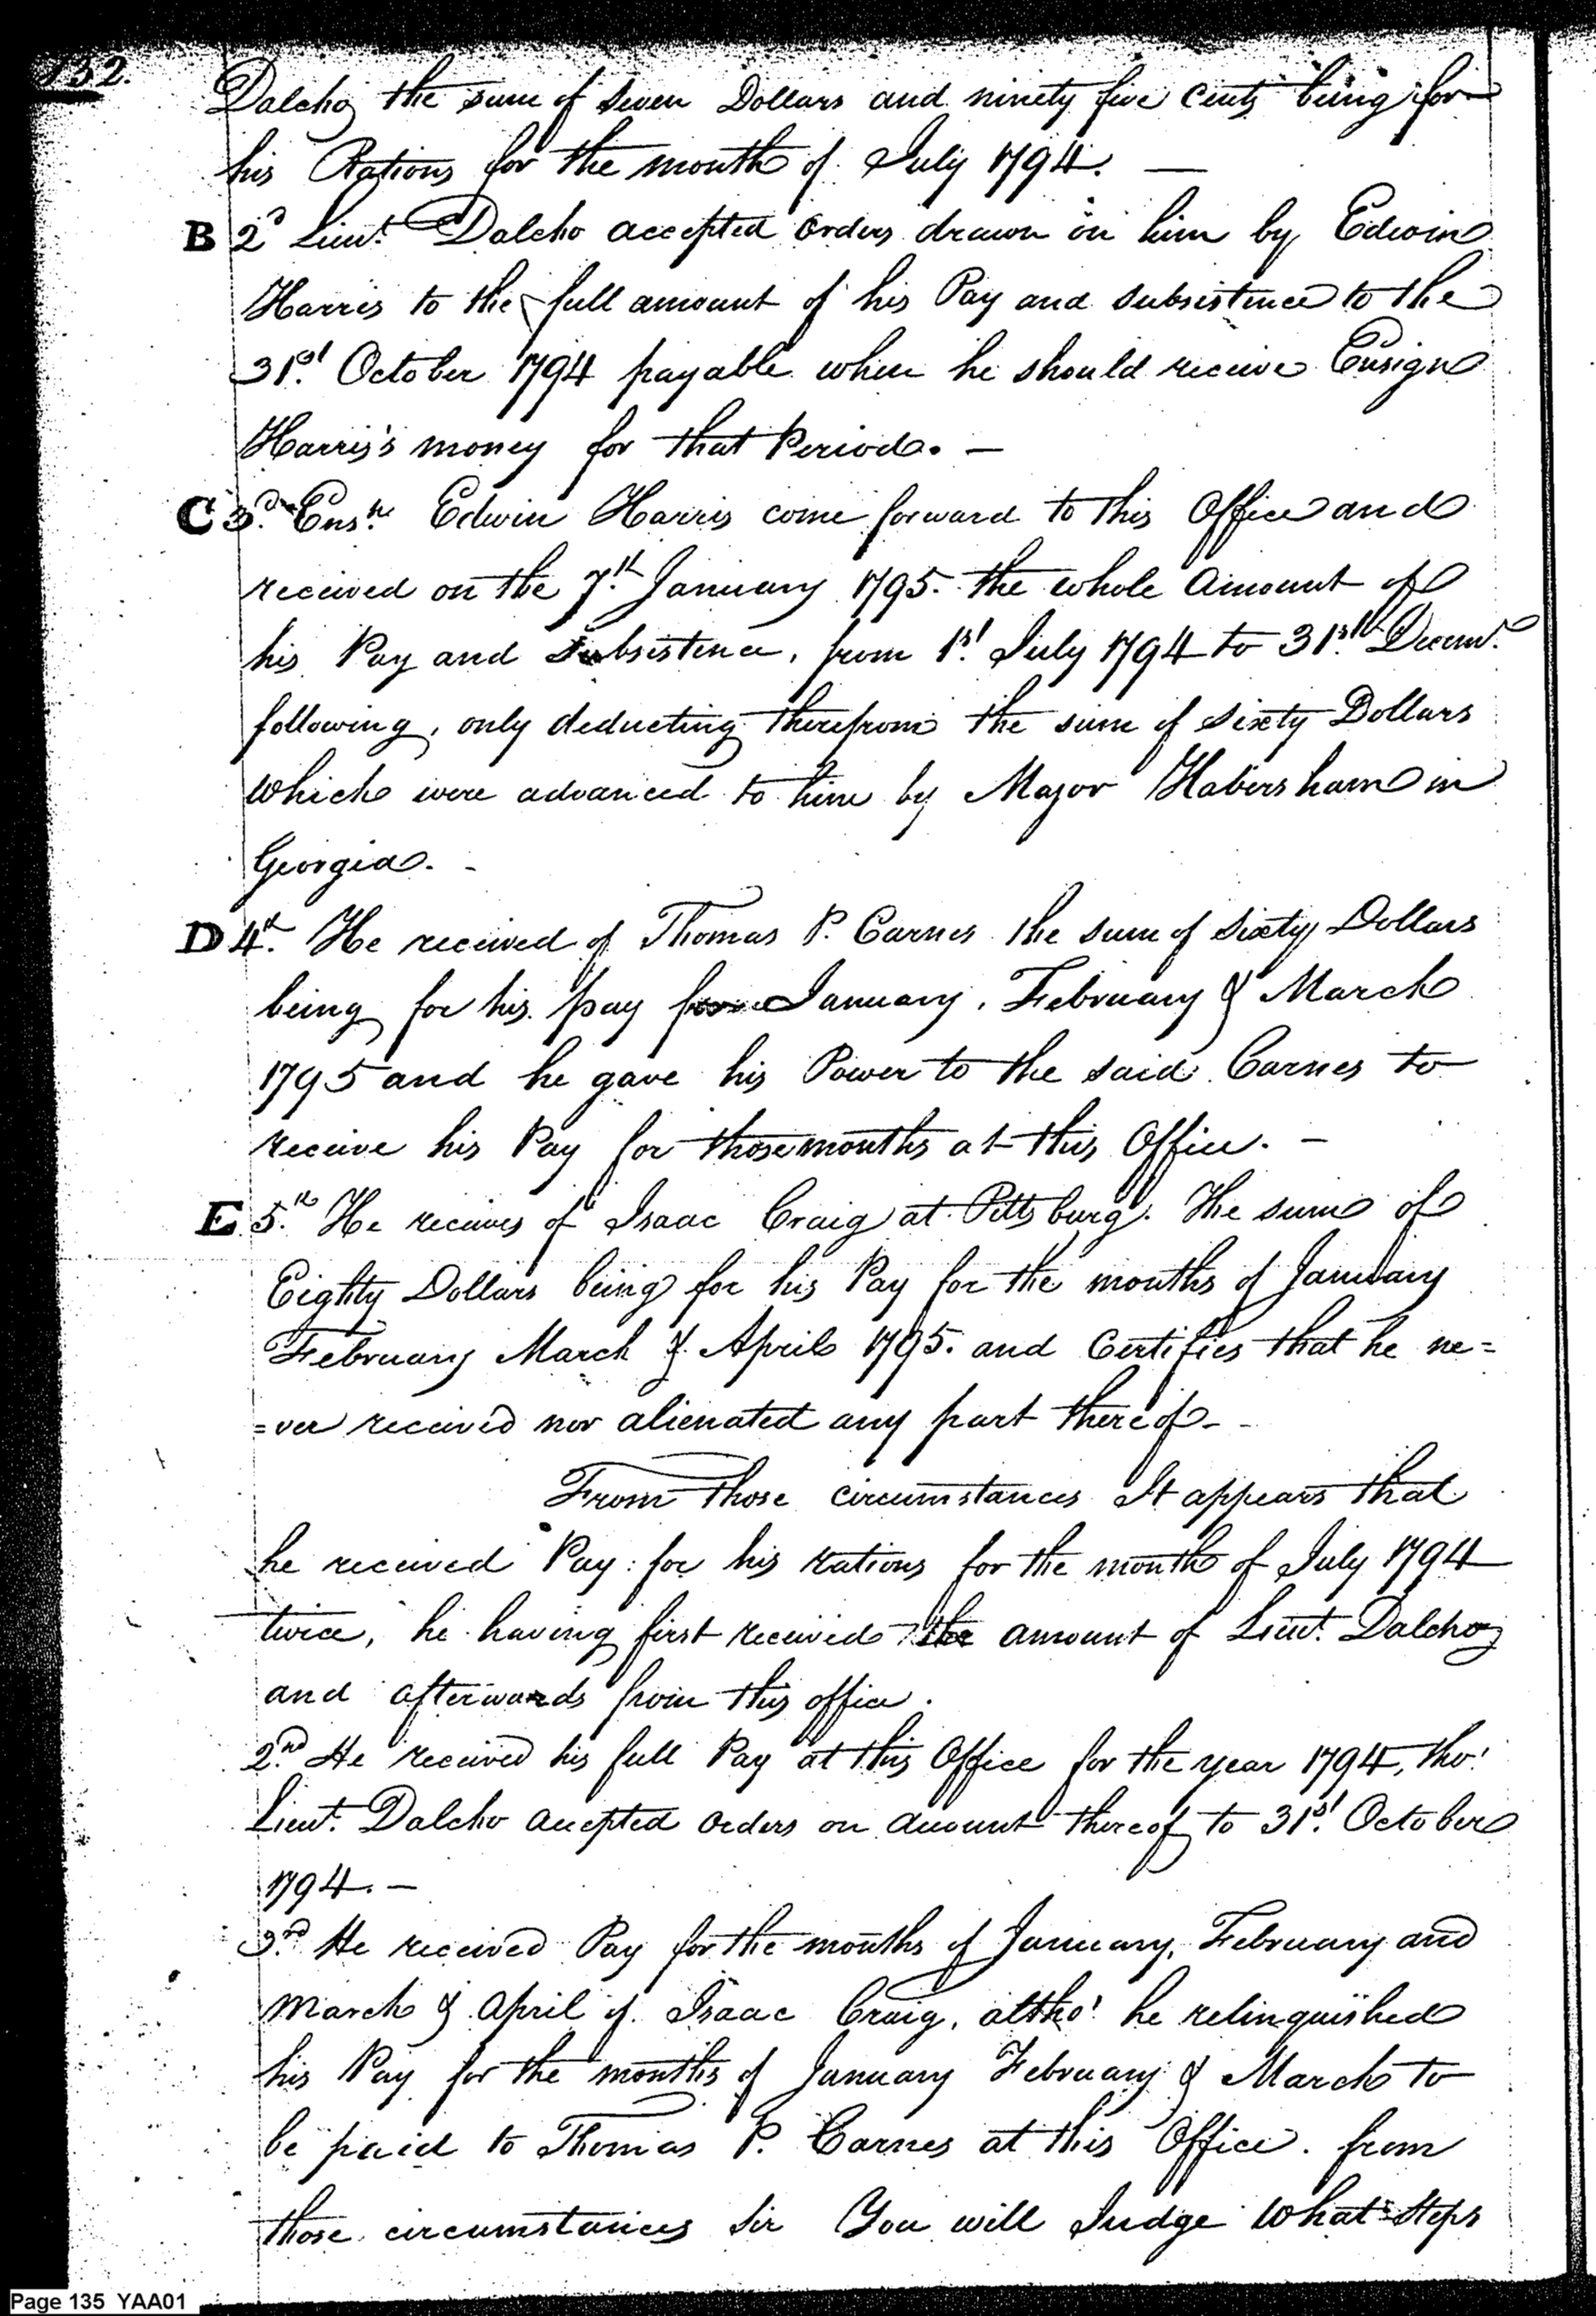 132.
Dalcho, the sum of seven Dollars and ninety five Cents being for
his Rations for the month of July 1794. —
B 2d Lieut. Dalcho accepted orders drawn on him by Edwin
Harris to the full amount of his Pay and subsistence to the
31st. October 1794 payable when he should receive Ensign
Harris's money for that Period. —
C 3d. Ensn. Edwin Harris come forward to this Office and
received on the 7th. January 1795. the whole Amount of
his Pay and Subsistence, from 1st. July 1794 to 31st. Decemr.
following, only deducting therefrom the sum of sixty Dollars
which were advanced to him by Major Habersham in
Georgia. -
D 4th. He received of Thomas P. Carnes the sum of sixty Dollars
being for his pay for January, February & March
1795 and he gave his Power to the said Carnes to
receive his Pay for those months at this Office. —
E 5.th He receives of Isaac Craig at Pittsburg. The sum of
Eighty Dollars being for his Pay for the months of January
February March & April 1795. and Certifies that he ne=
=ver received nor alienated any part thereof. -
From those circumstances It appears that
he received Pay for his rations for the month of July 1794
twice, he having first received the amount of Lieut. Dalcho,
and afterwards from this office.
2nd. He received his full Pay at this Office for the year 1794, tho'
Lieut. Dalcho accepted orders on account thereof to 31st. October
1794. —
3rd. He received Pay for the months of January, February and
March & April of Isaac Craig, altho' he relinquished
his Pay for the months of January February & March to
be paid to Thomas P. Carnes at this Office. from
those circumstances Sir You will Judge what steps
Page 135 YAA01